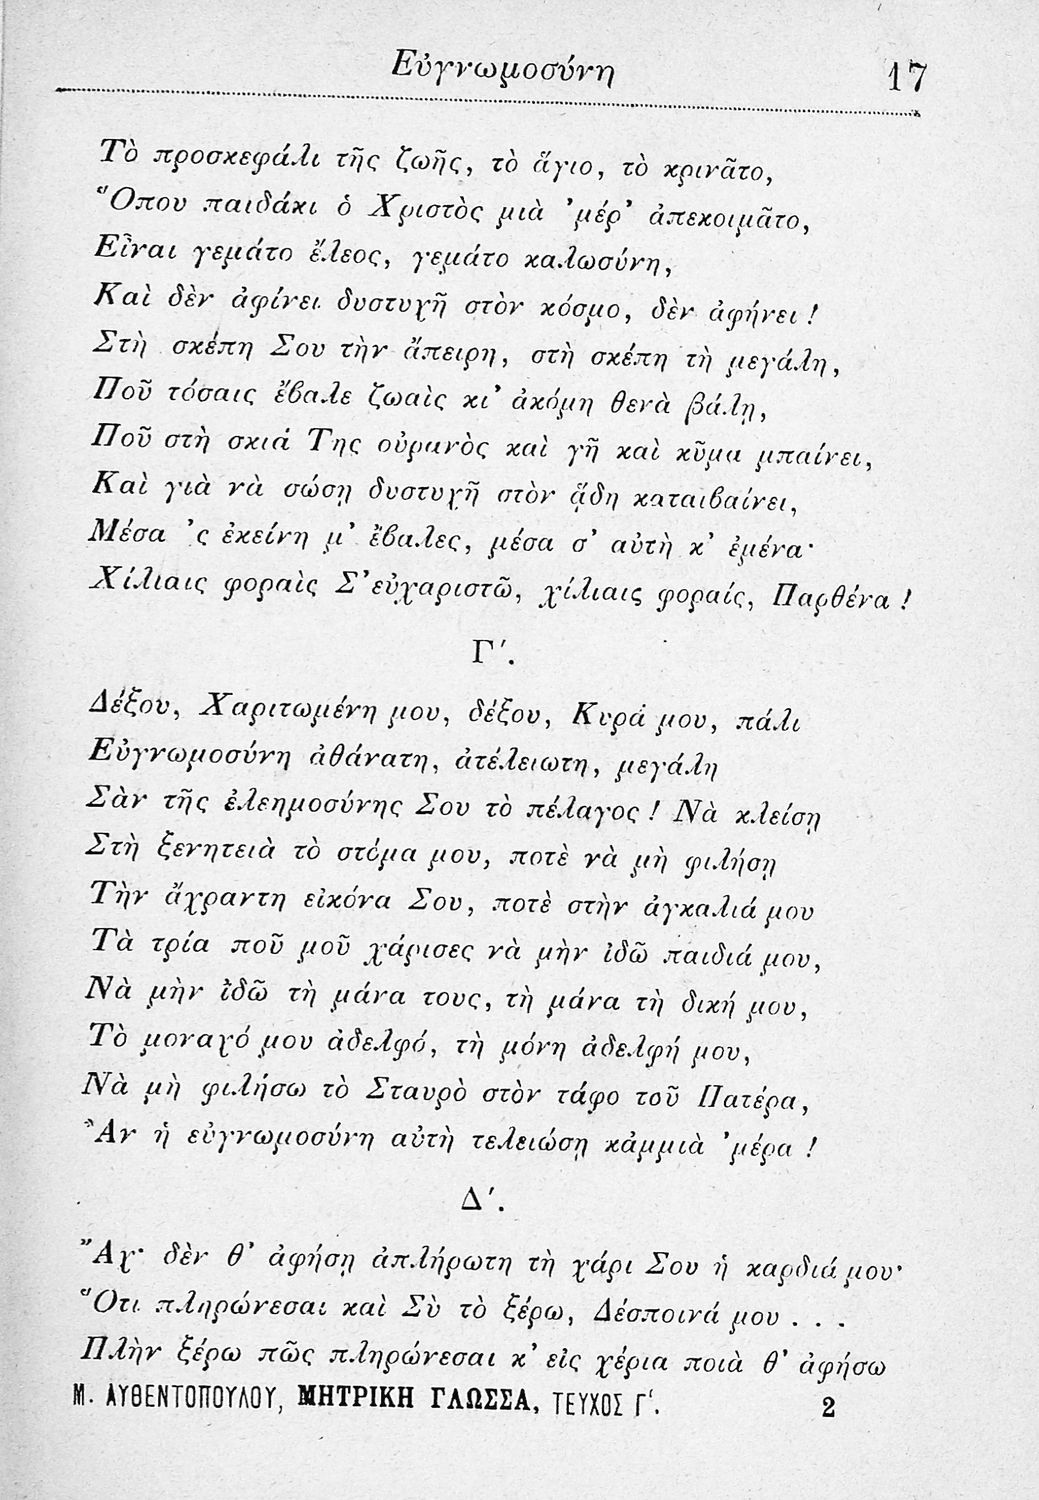 Εὐγνωμοσύνη 17
Τὸ προσκεφάλι τῆς ζωῆς, τὸ ἅγιο, τὸ κρινᾶτο,
Ὅπου παιδάκι ὁ Χριστὸς μιὰ ’μέρ’ ἀπεκοιμᾶτο,
Εἶναι γεμάτο ἔλεος, γεμάτο καλωσύνη,
Καὶ δὲν ἀφίνει δυστυχῆ στὸν κόσμο, δὲν ἀφήνει !
Στὴ σκέπη Σου τὴν ἄπειρη, στὴ σκέπη τὴ μεγάλη,
Ποῦ τόσαις ἔβαλε ζωαὶς κι’ ἀκόμη θενὰ βάλῃ,
Ποῦ στὴ σκιά Της οὐρανὸς καὶ γῆ καὶ κῦμα μπαίνει,
Καὶ γιὰ νὰ σώσῃ δυστυχῆ στὸν ᾅδη καταιβαίνει,
Μέσα ’ς ἐκείνη μ’ ἔβαλες, μέσα σ’ αὐτὴ κ’ ἐμένα·
Χίλιαις φοραὶς Σ’ εὐχαριστῶ, χίλιαις φοραίς, Παρθένα !
Γ΄.
Δέξου, Χαριτωμένη μου, δέξου, Κυρά μου, πάλι
Εὐγνωμοσύνη ἀθάνατη, ἀτέλειωτη, μεγάλη
Σὰν τῆς ἐλεημοσύνης Σου τὸ πέλαγος ! Νὰ κλείσῃ
Στὴ ξενητειὰ τὸ στόμα μου, ποτὲ νὰ μὴ φιλήσῃ
Τὴν ἄχραντη εἰκόνα Σου, ποτὲ στὴν ἀγκαλιά μου
Τὰ τρία ποῦ μοῦ χάρισες νὰ μὴν ἰδῶ παιδιά μου,
Νὰ μὴν ἰδῶ τὴ μάνα τους, τὴ μάνα τὴ δική μου,
Τὸ μοναχό μου ἀδελφό, τὴ μόνη ἀδελφή μου,
Νὰ μὴ φιλήσω τὸ Σταυρὸ στὸν τάφο τοῦ Πατέρα,
Ἂν ἡ εὐγνωμοσύνη αὐτὴ τελειώσῃ κἀμμιὰ ’μέρα !
Δ΄.
Ἄχ· δὲν θ’ ἀφήσῃ ἀπλήρωτη τὴ χάρι Σου ἡ καρδιά μου·
Ὅτι πληρώνεσαι καὶ Σὺ τὸ ξέρω, Δέσποινά μου . . .
Πλὴν ξέρω πῶς πληρώνεσαι κ’ εἰς χέρια ποιὰ θ’ ἀφήσω
Μ. ΑΥΘΕΝΤΟΠΟΥΛΟΥ, ΜΗΤΡΙΚΗ ΓΛΩΣΣΑ, ΤΕΥΧΟΣ Γ΄. 2